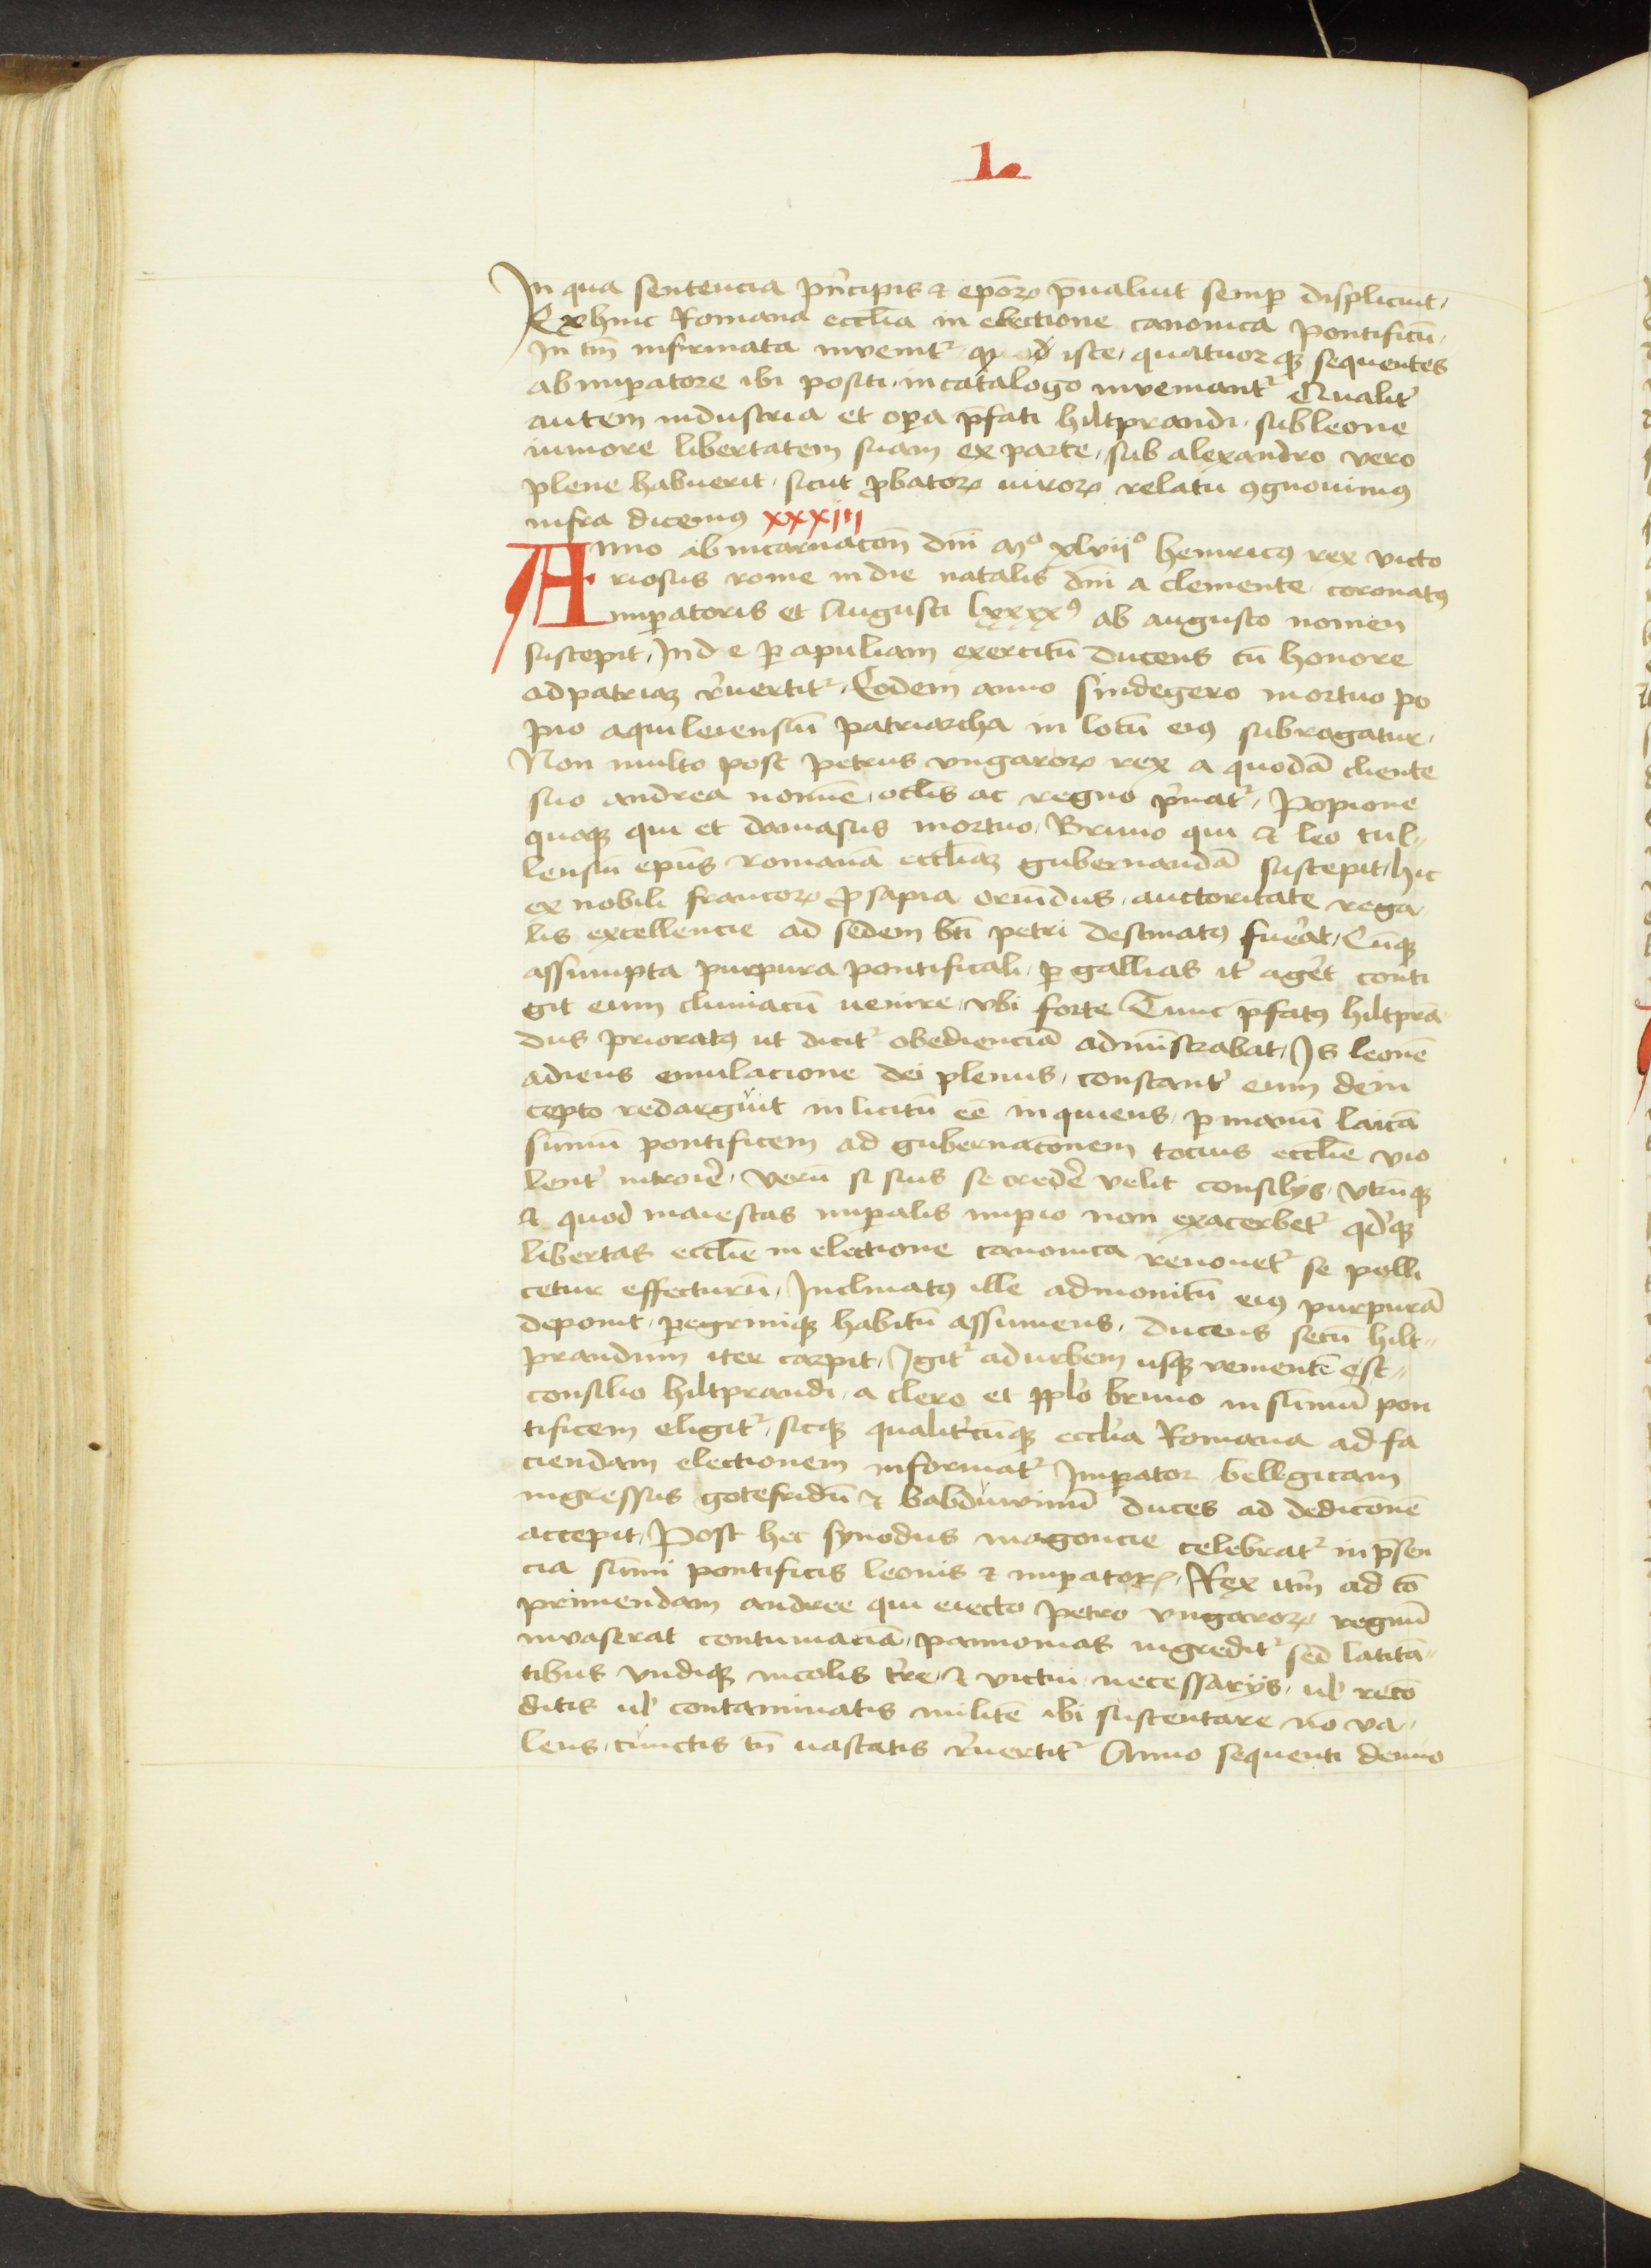 L
In qua sentencia pn̄cipis ⁊ ep̄oꝝ p̄ualuit semꝑ displicuit.
Exhinc Romana eccl̄ia in electione canonica pontificū.
In tm̄ infirmata invenitᷣ quod iste. quatuor qꝫ sequentes
ab imꝑatore ibi positi. in catalogo inveniantᷣ Qualit͛
autem industria et oꝑa p̄fati hiltprandi. sub leone
iuniore libertatem suam ex parte. sub alexandro vero
plene habuerit. sicut ꝓbatoꝝ uiroꝝ relatu ꝯgnouimꝰ
infra dicemꝰ xxxiii
Anno ab incarnacōn dn̄i Mº xlviiº heinricꝰ rex victo
riosus rome in die natalis dn̄i a clemente coronatꝰ
imꝑatoris et Augusti lxxxxꝰ ab augusto nomen
suscepit. Inde ꝑ apuliam exercitū ducens cū honore
ad patriaꝫ r̄uertitᷣ. Eodem anno sindegero mortuo po
pio aquileiensiū patriarcha in locū eiꝰ subrogatur.
Non multo post petrus vngaroꝝ rex a quodā cliente
suo andrea nomīe. oclis ac regno p͛uatᷣ. Popione
quoqꝫ qui et damasus mortuo. Bruno qui ⁊ leo tul-
lensiū ep̄us romanā eccl̄iaꝫ gubernandā suscepit. hic
ex nobili francoꝝ ꝓsapia oriūdus. auctoritate rega
lis excellencie ad sedem bt̄i petri destinatꝰ fuerat. Cūqꝫ
assumpta purpura pontificali. ꝑ gallias it͛ ag͛et conti
git eum cluniacū uenire. vbi forte Tunc p̄fatꝰ hiltprā
dus prioratꝰ ut dicitᷣ obedienciā administrabat. Is leonē
adiens emulacione dei plenus. constant͛ eum dein
cepto redarguit inlicitū eē inquiens. ꝑ manū laicā
sūmū pontificem ad gubernacōnem tocius eccl̄ie vio
lent͛ introire. verū si suis se credere velit consilijs. vtrūqꝫ
⁊ quod maiestas imꝑialis imꝑio non exacerbetᷣ qd͛qꝫ
libertas eccl̄ie in electione canonica renouetᷣ se polli
cetur effecturū. Inclinatꝰ ille admonitū eiꝰ purpurā
deponit. ꝑegriniqꝫ habitū assumens. ducens secū hilt-
prandum iter carpit. Igitᷣ ad urbem usqꝫ venientē est-
consilio hiltprandi. a clero et pplo bruno in sūmū pon
tificem eligitᷣ. sicqꝫ qualit͛cūqꝫ eccl̄ia Romana ad fa
ciendam electionem informatᷣ Imꝑator bellgicam
ingressus gotefridū ⁊ babduwinū duces ad dedicōnē
accepit. Post hec synodus magoncie celebratᷣ in p̄sen
cia sūmi pontificis leonis ⁊ imꝑatoꝝ. Rex itm̄ ad cō
primendam andree qui eiecto petro vngaroꝝ regnū
invaserat contumaciā. pannonias ingreditᷣ sed latitā-
tibus vndiqꝫ incolis t͛re. ⁊ victui necessarijs. ul̄ recō
ditis ul̄ contaminatis militē ibi sustentare nō va.
lens. cunctis tn̄ uastatis r͛uertitᷣ Anno sequenti denuo